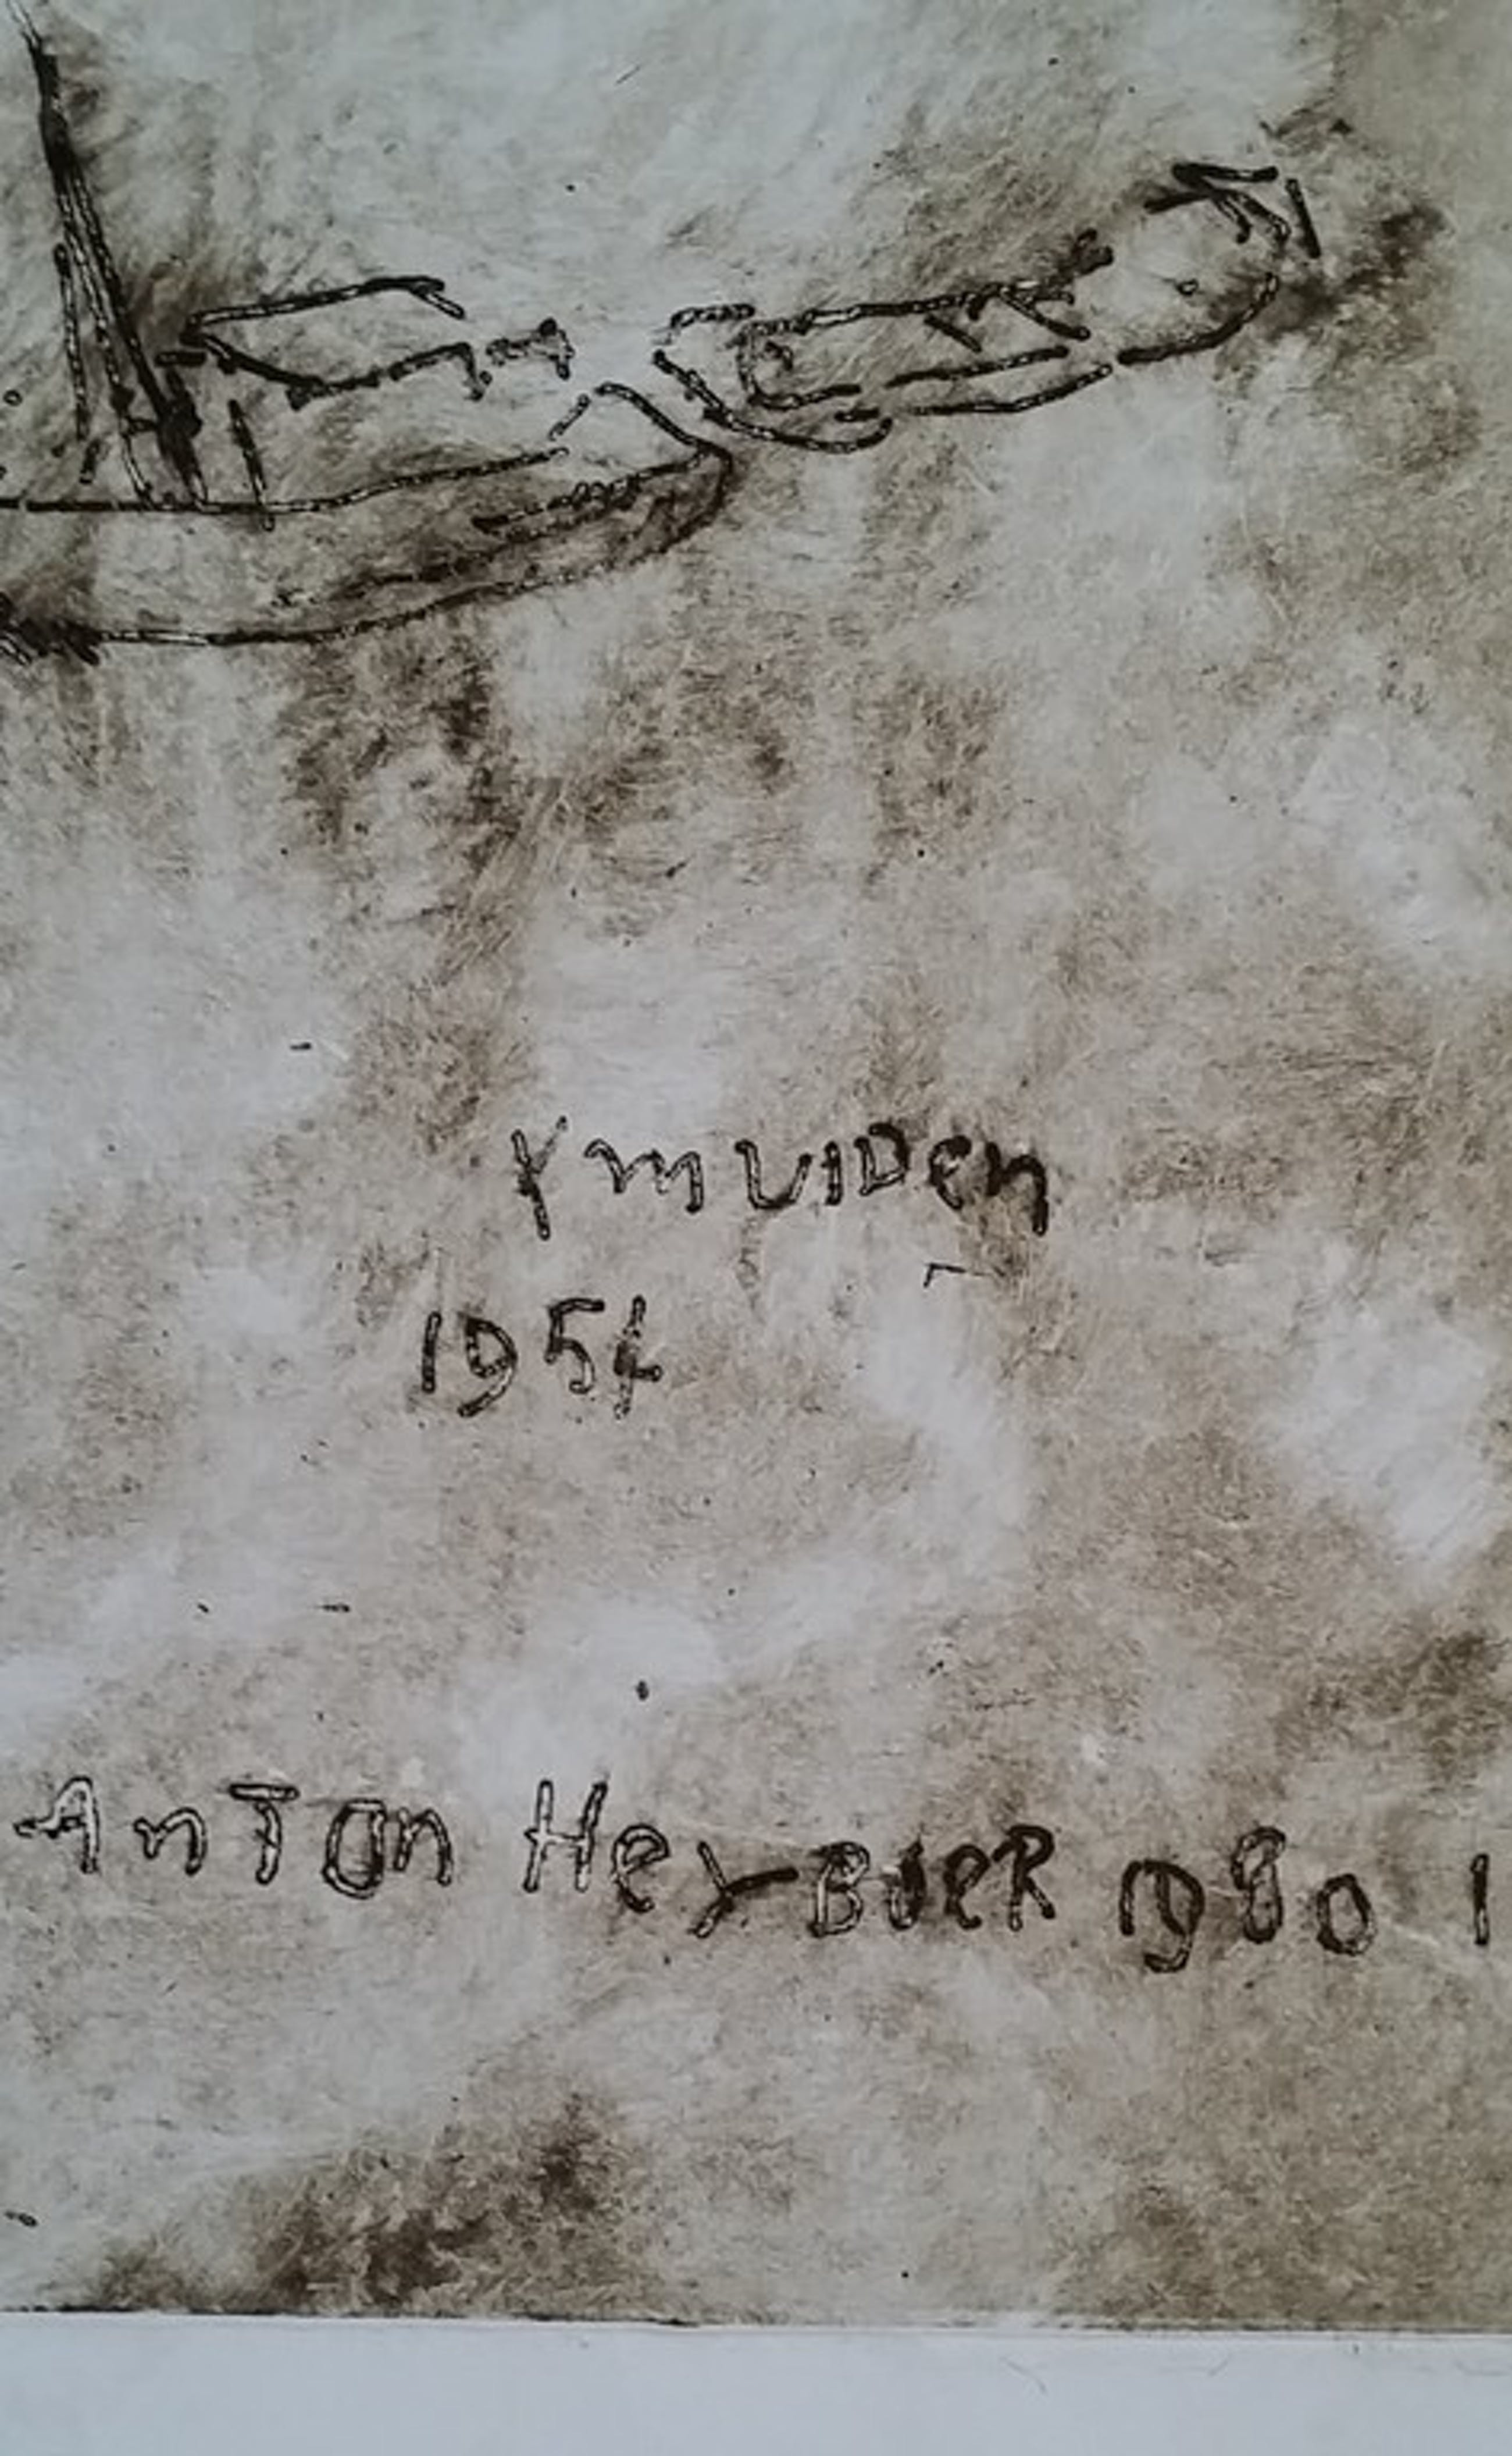 Ymuiden
1954
AnTon HeyBoeR 1980 1